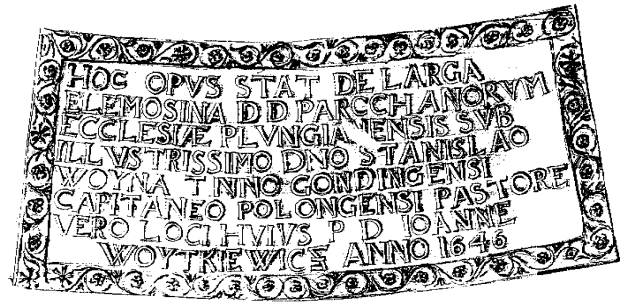 HOC OPVS STAT DE LARGA
ELEMOSINA D D PAROCHANORVM
ECCLESIÆ PLVNGIANENSIS SVB
ILLVSTRISSIMO DNO STANISLAO
WOYNA T NINO GONDINGENSI
CAPITANEO POLONGENSI PASTORE
VERO LOCI HVIVS P D IOANNE
WOYTKIEWICZ ANNO 1646